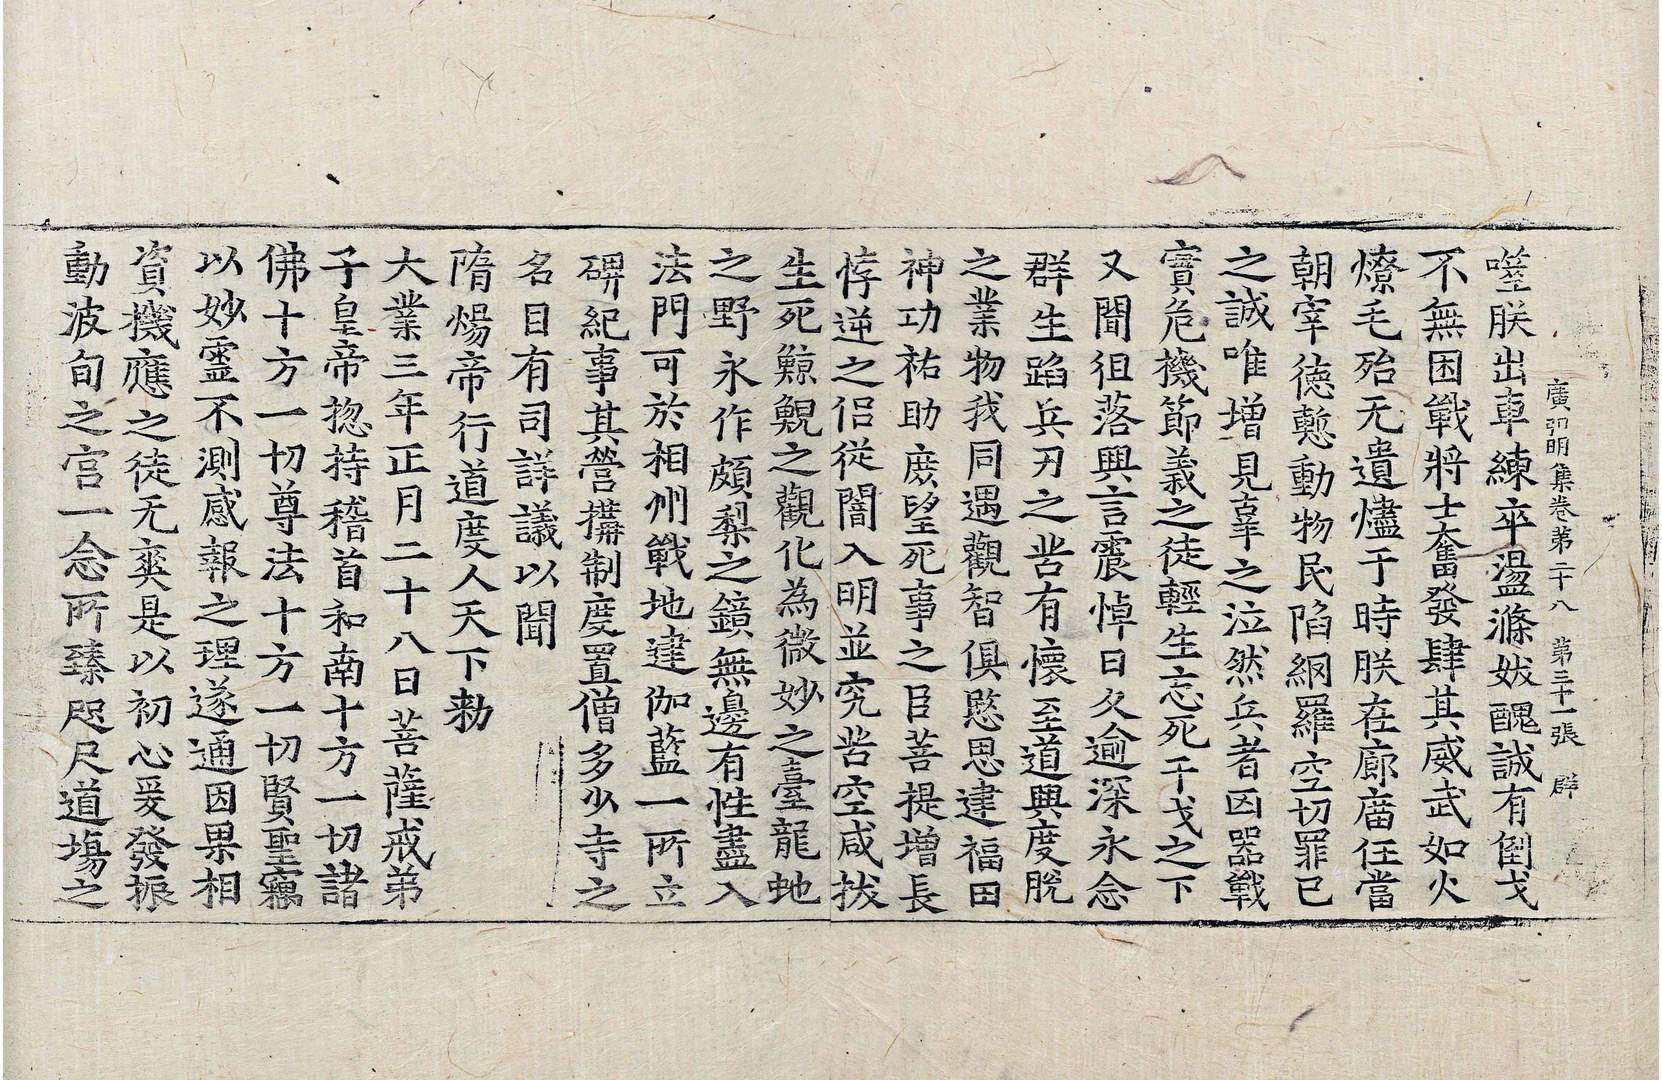 廣弘明集卷第二十八 第三十一張 群
噬朕出車練卒盪滌妭醜誠有倒戈
不無困戰將士奮發肆其威武如火
燎毛殆无遺燼于時朕在廊庿任當
朝宰德慙動物民陷網羅空切罪已
之誠唯增見辜之泣然兵者凶器戰
實危機節義之徒輕生忘死干戈之下
又聞徂落興言震悼日久逾深永念
群生蹈兵刃之苦有懷至道興度脫
之業物我同遇觀智俱愍思建福田
神功祐助庶望死事之臣菩提增長
悖逆之侶從闇入明並究苦空咸拔
生死鯨鯢之觀化為微妙之臺龍虵
之野永作頗梨之鏡無邊有性盡入
法門可於相州戰地建伽藍一所立
碑紀事其營搆制度置僧多少寺之
名目有司詳議以聞
隋煬帝行道度人天下勑
大業三年正月二十八日菩薩戒弟
子皇帝揔持稽首和南十方一切諸
佛十方一切尊法十方一切賢聖竊
以妙靈不測感報之理遂通因果相
資機應之徒无爽是以初心爰發振
動波旬之宮一念所臻咫尺道場之